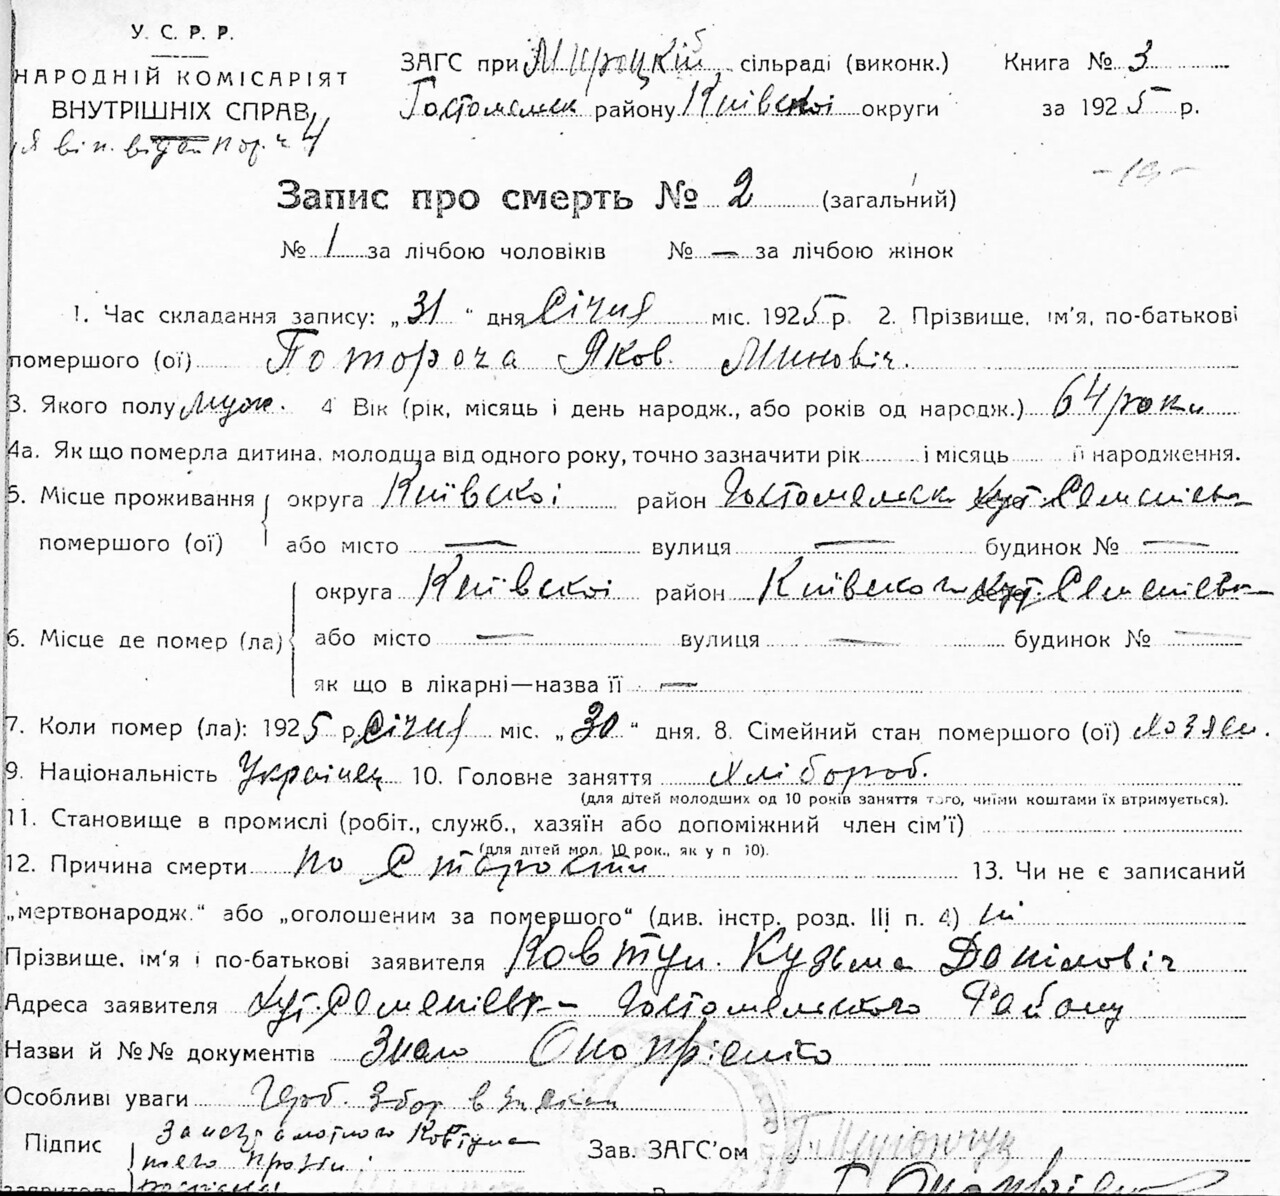 У. С. Р. Р.
НАРОДНІЙ КОМІСАРІЯТ
ВНУТРІШНІХ СПРАВ
ЗАГС при Мироцкій сільраді (виконк.) Книга № 3
Гостомельск району Київскоі округи за 1925 р.
Запис про смерть № 2 (загальний)
№ 1 за лічбою чоловіків № — за лічбою жінок
1. Час складання запису: „31“ дня Січня міс. 1925 р. 2. Прізвище, ім'я, по-батькові
помершого (ої) Потороча Яков Минович.
3. Якого полу муж. 4 Вік (рік, місяць і день народж., або років од народж.) 64 роки
4а. Як що померла дитина, молодща від одного року, точно зазначити рік і місяць її народження.
5. Місце проживання помершого (ої) округа Київскоі район Гостомельск хут.
або місто — вулиця — будинок № —
6. Місце де помер (ла) округа Київскоі район Київского хут.
або місто — вулиця — будинок № —
як що в лікарні—назва її —
7. Коли помер (ла): 1925 р. січня міс. „30“ дня. 8. Сімейний стан помершого (ої) хозяин.
9. Національність Українец 10. Головне заняття хлібороб.
(для дітей молодших од 10 років заняття того, чиїми коштами їх втримується).
11. Становище в промислі (робіт., служб., хазяїн або допоміжний член сім'ї)
(для дітей мол. 10 рок., як у п 10).
12. Причина смерти по старости 13. Чи не є записаний
„мертвонародж.“ або „оголошеним за помершого“ (див. інстр. розд. III п. 4) ні
Прізвище, ім'я і по-батькові заявителя Ковтун Кузьма Данілович
Адреса заявителя хут. Гостомельского Району
Назви й №№ документів Знаю Онопріенко
Особливі уваги Герб. Збор в
Підпис
заявителя
Зав. ЗАГС'ом